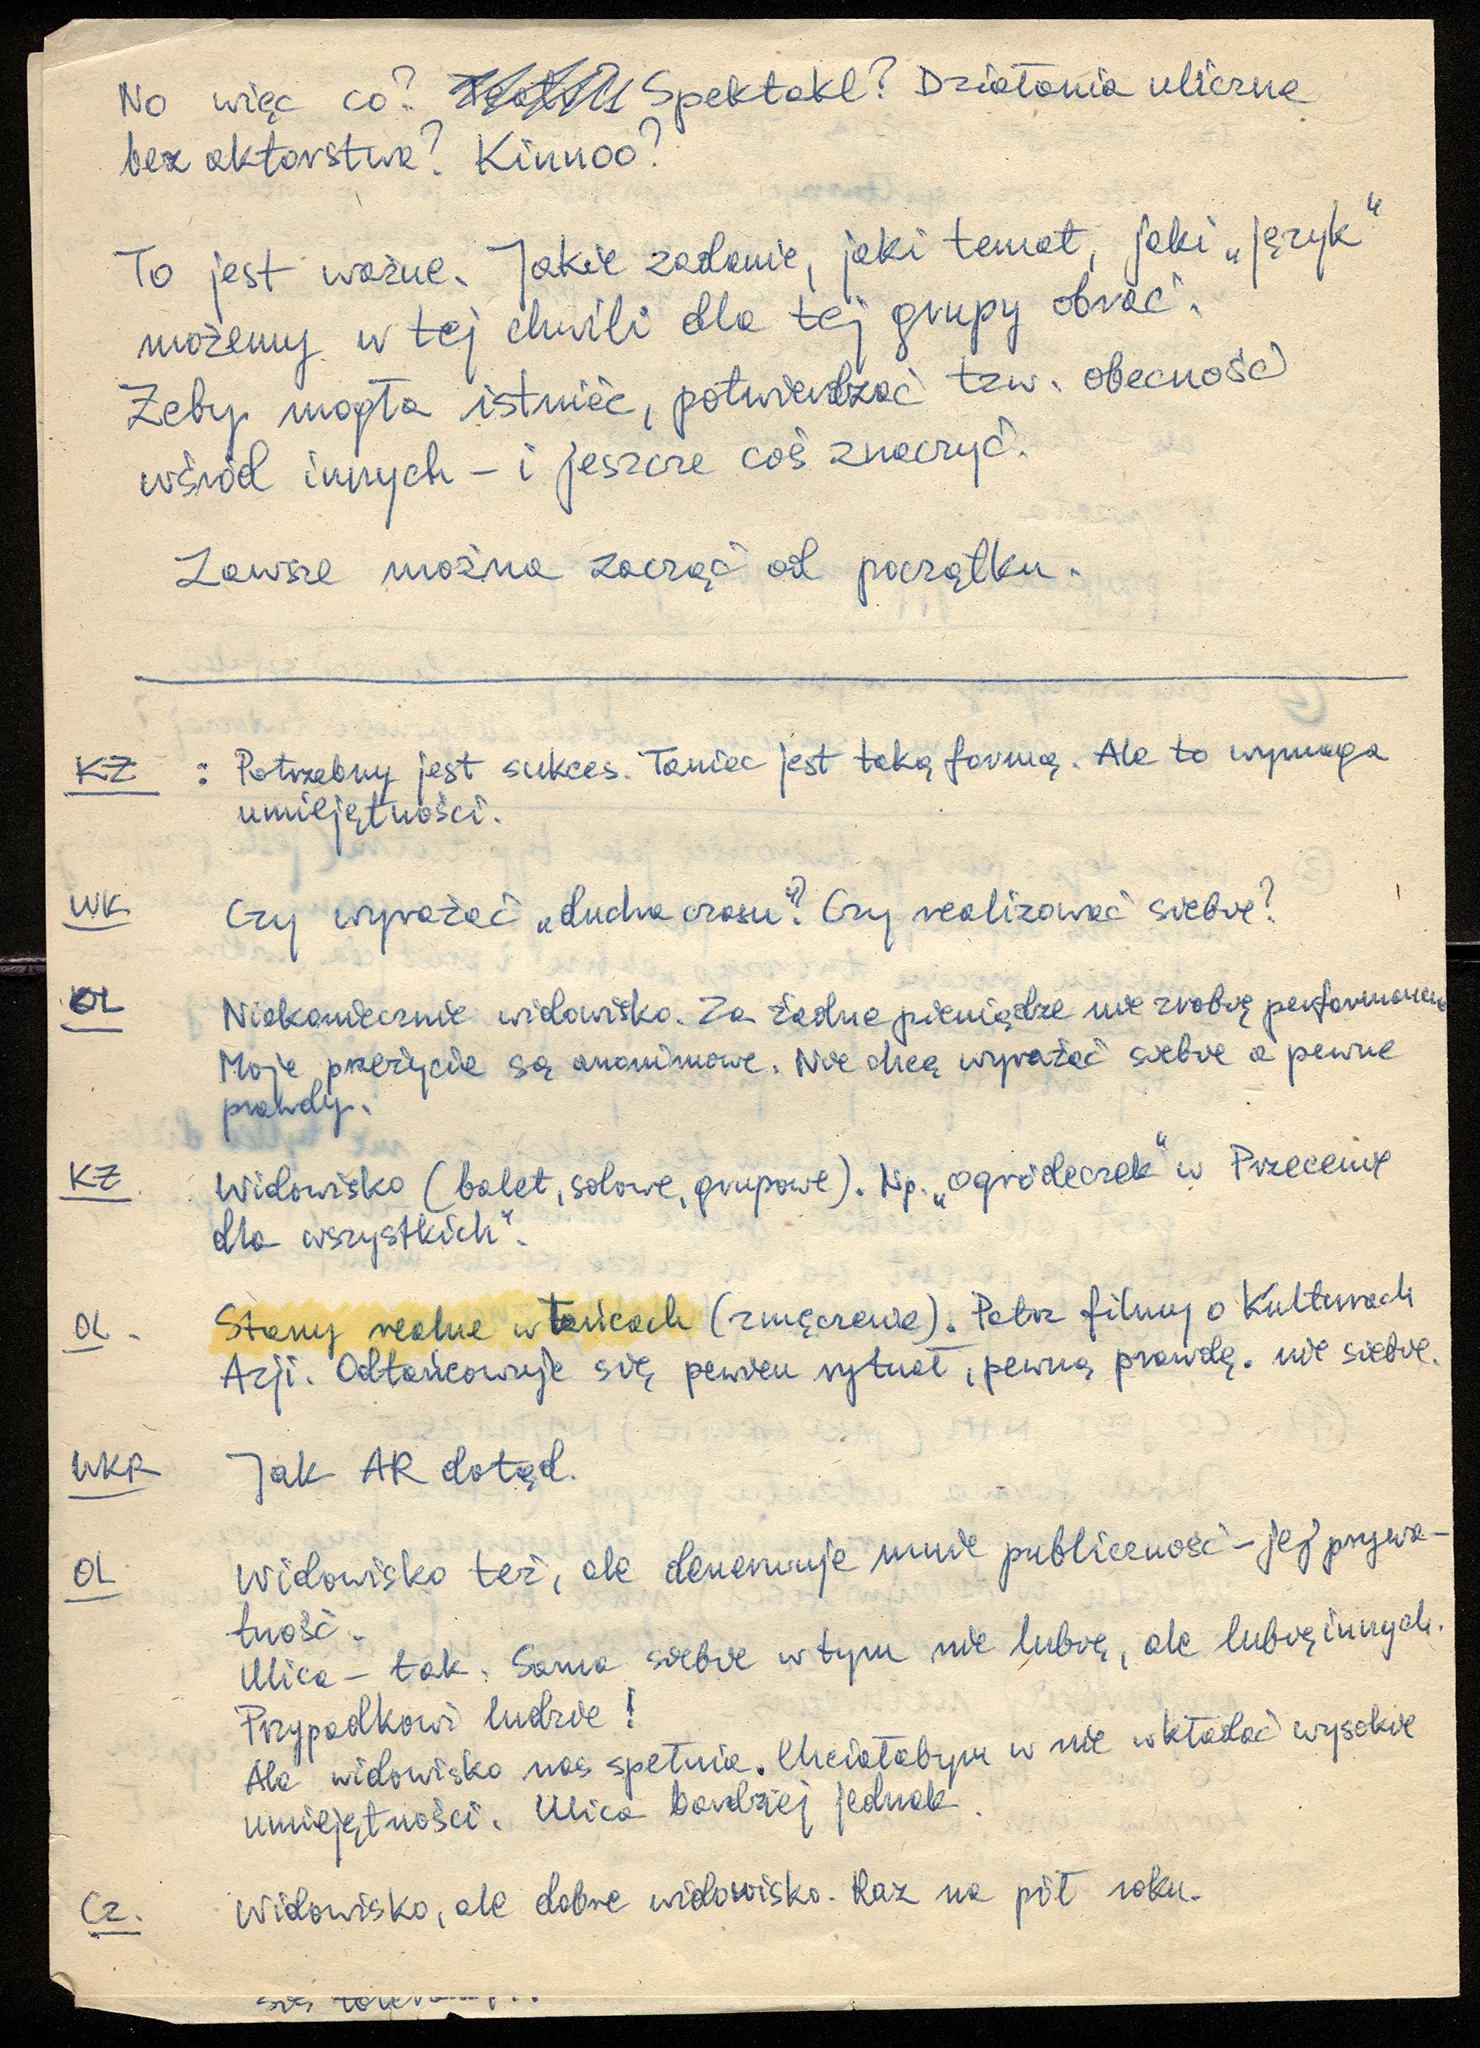 No więc co? Spektakl? Działania uliczne
bez aktorstwa? Kinnoo?
To jest ważne. Jakie zadanie, jaki temat, jaki „język“
możemy w tej chwili dla tej grupy obrać.
Żeby mogła istnieć, potwierdzać tzw. obecność
wśród innych – i jeszcze coś znaczyć.
Zawsze można zacząć od początku.
KŻ : Potrzebny jest sukces. Taniec jest taką formą. Ale to wymaga
umiejętności.
WK Czy wyrażać „ducha czasu“? Czy realizować siebie?
OL Niekoniecznie widowisko. Za żadne pieniądze nie zrobię
Moje przeżycia są anonimowe. Nie chcę wyrażać siebie a pewne
prawdy.
KŻ Widowisko (balet, solowe, grupowe). Np. „ogródeczek“ w Przecenie
dla wszystkich“.
OL. Stany realne w tańcach (zmęczenie). Patrz filmy o Kulturach
Azji. Odtańcowuje się pewien rytuał, pewną prawdę. nie siebie.
WKR Jak AR dotąd.
OL Widowisko też, ale denerwuje mnie publiczność – jej prywa-
tność.
Ulica – tak. Sama siebie w tym nie lubię, ale lubię innych.
Przypadkowi ludzie!
Ale widowisko nas spełnia. Chciałabym w nie wkładać wysokie
umiejętności. Ulica bardziej jednak.
Cz. Widowisko, ale dobre widowisko. Raz na pół roku.